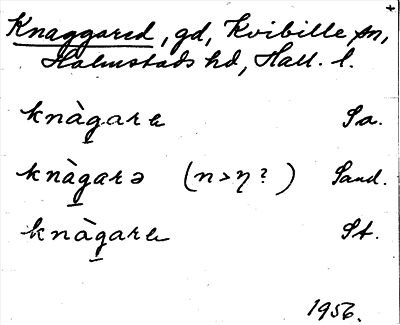 Knaggared, gd, Kvibille sn,
Halmstads hd, Hall. l.
knàg̱arɐ Sa.
knàg̱arə (n>ŋ?) Sand.
knàg̱arɐ St.
1956.